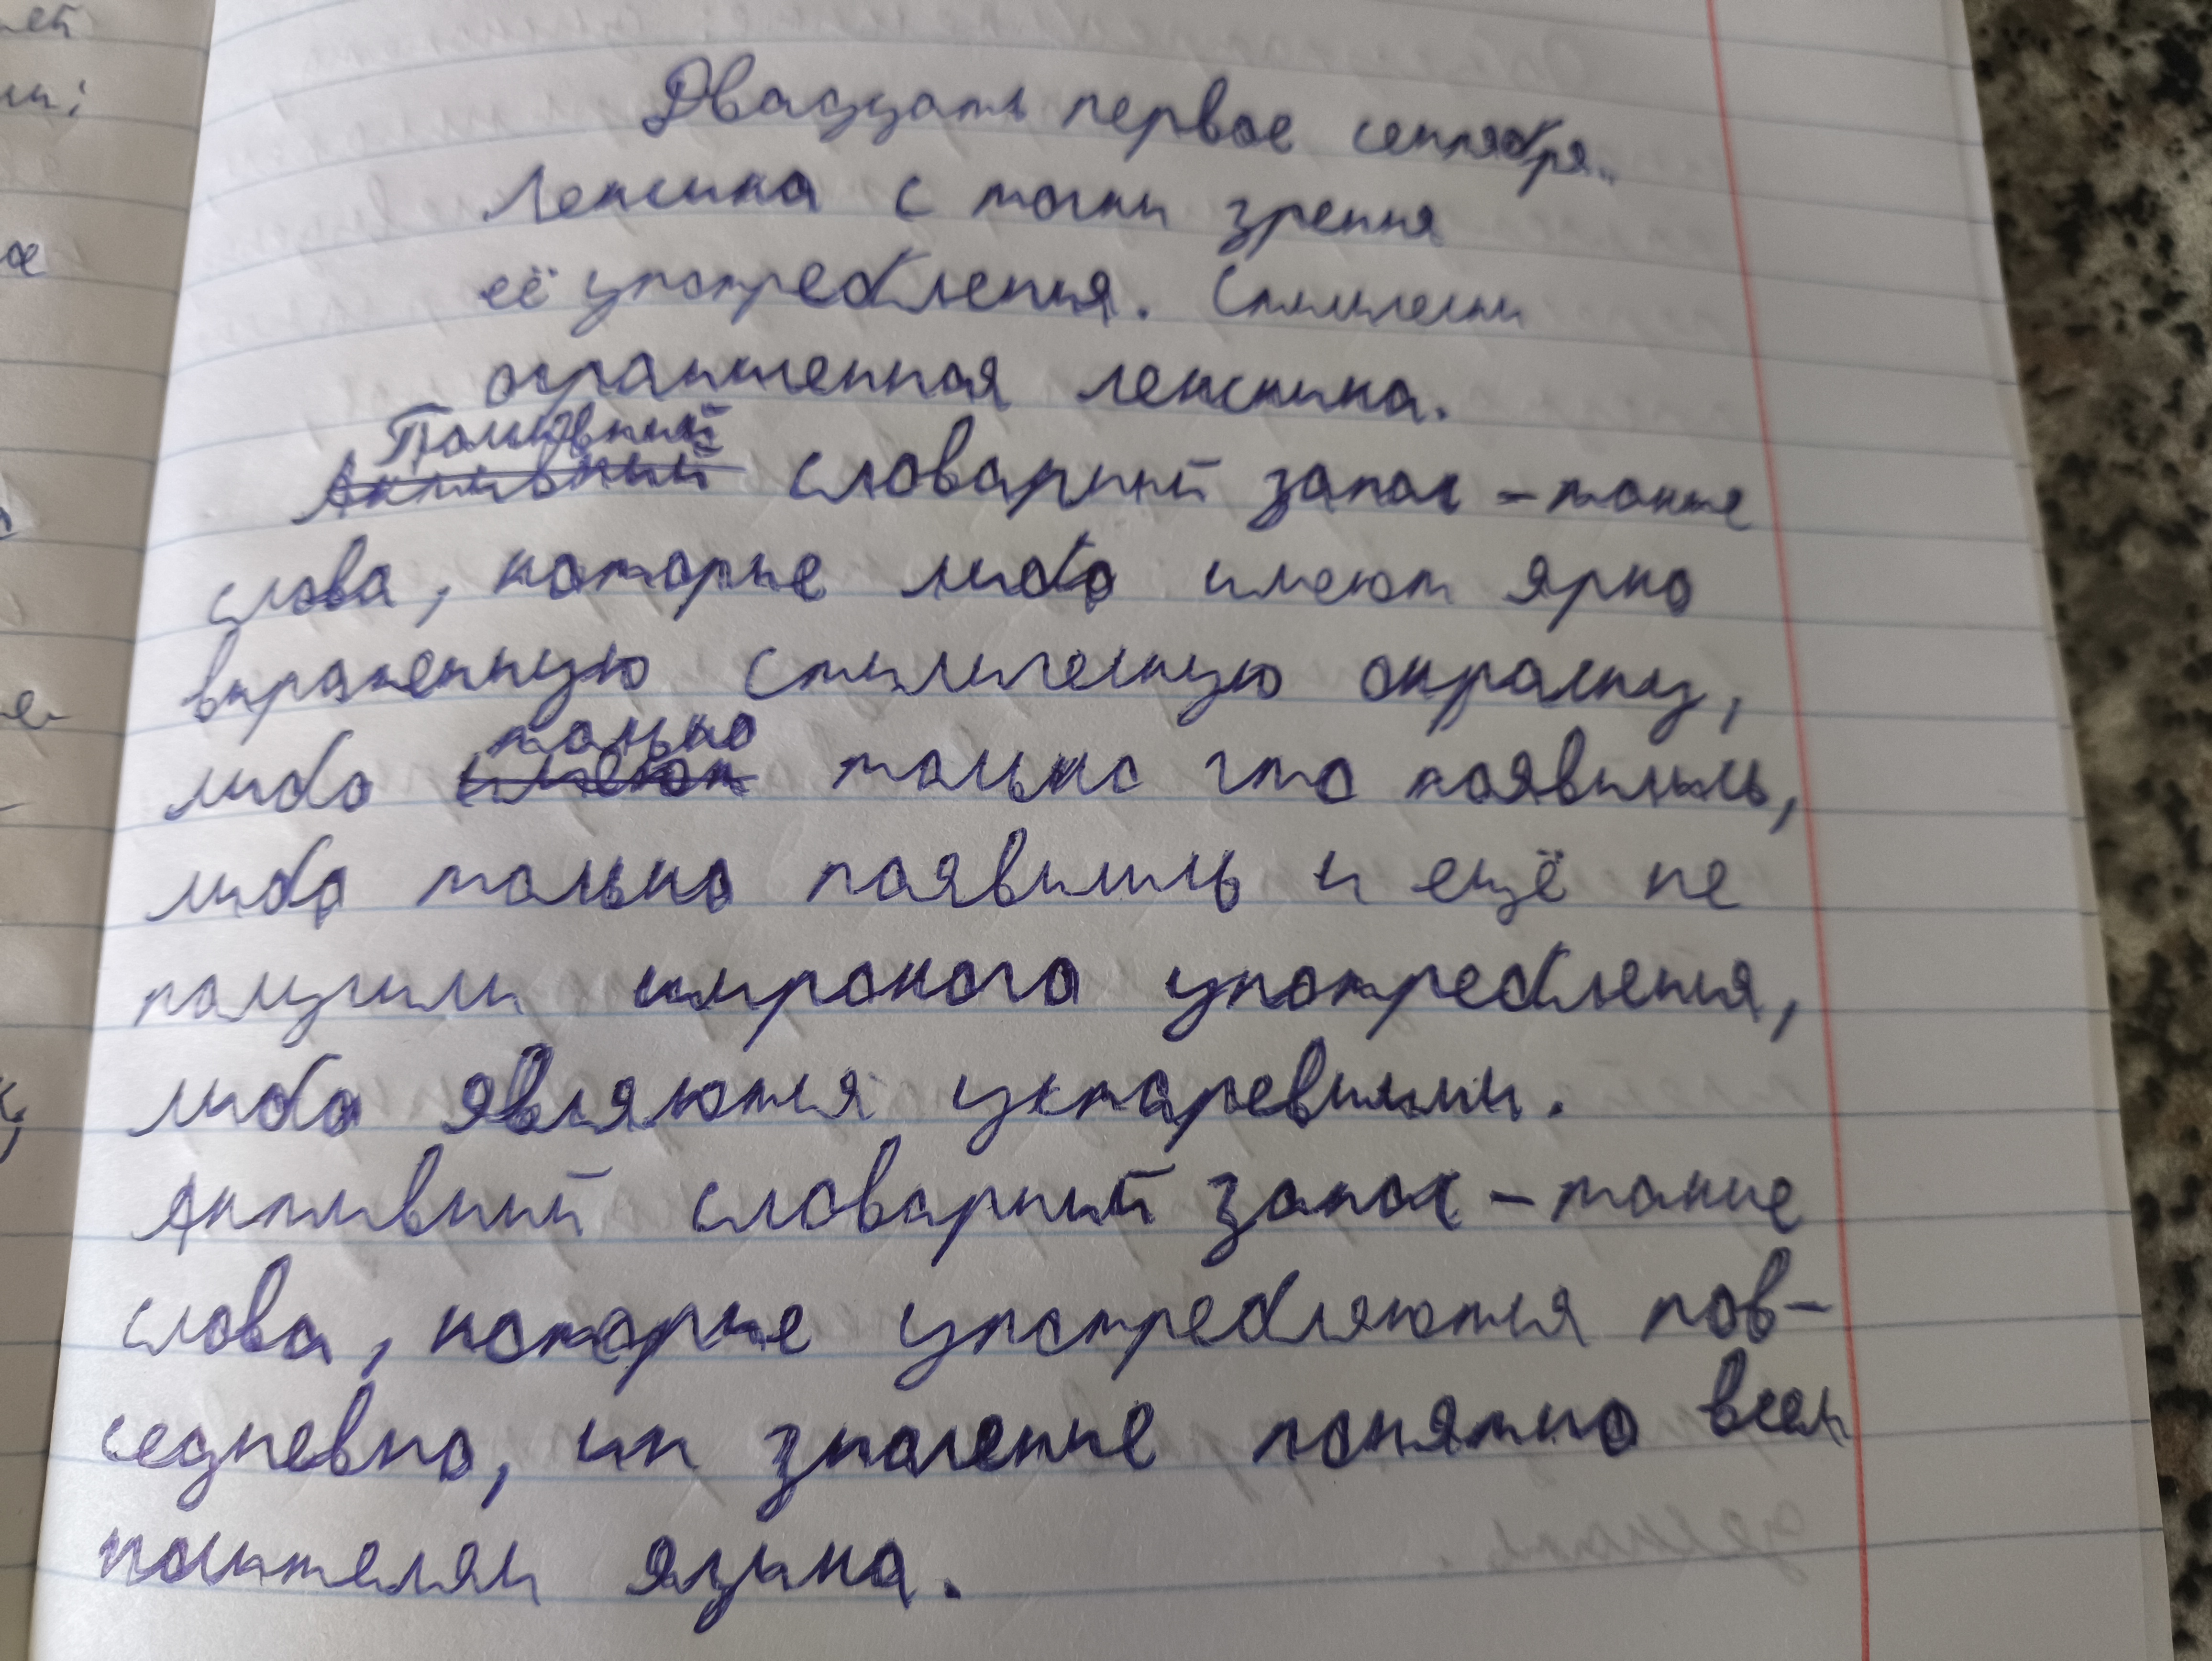 Двадцать первое сентября.
Лексика с точки зрения
её употребления. Стилистически
ограниченная лексика.
Пассивный
словарный запас – такие
слова, которые либо имеют ярко
выраженную стилистическую окраску,
либо только только что появились,
либо только появились и ещё не
получили широкого употребления,
либо являются устаревшими.
Активный словарный запас – такие
слова, которые употребляются пов-
седневно, их значение понятно всем
носителям языка.